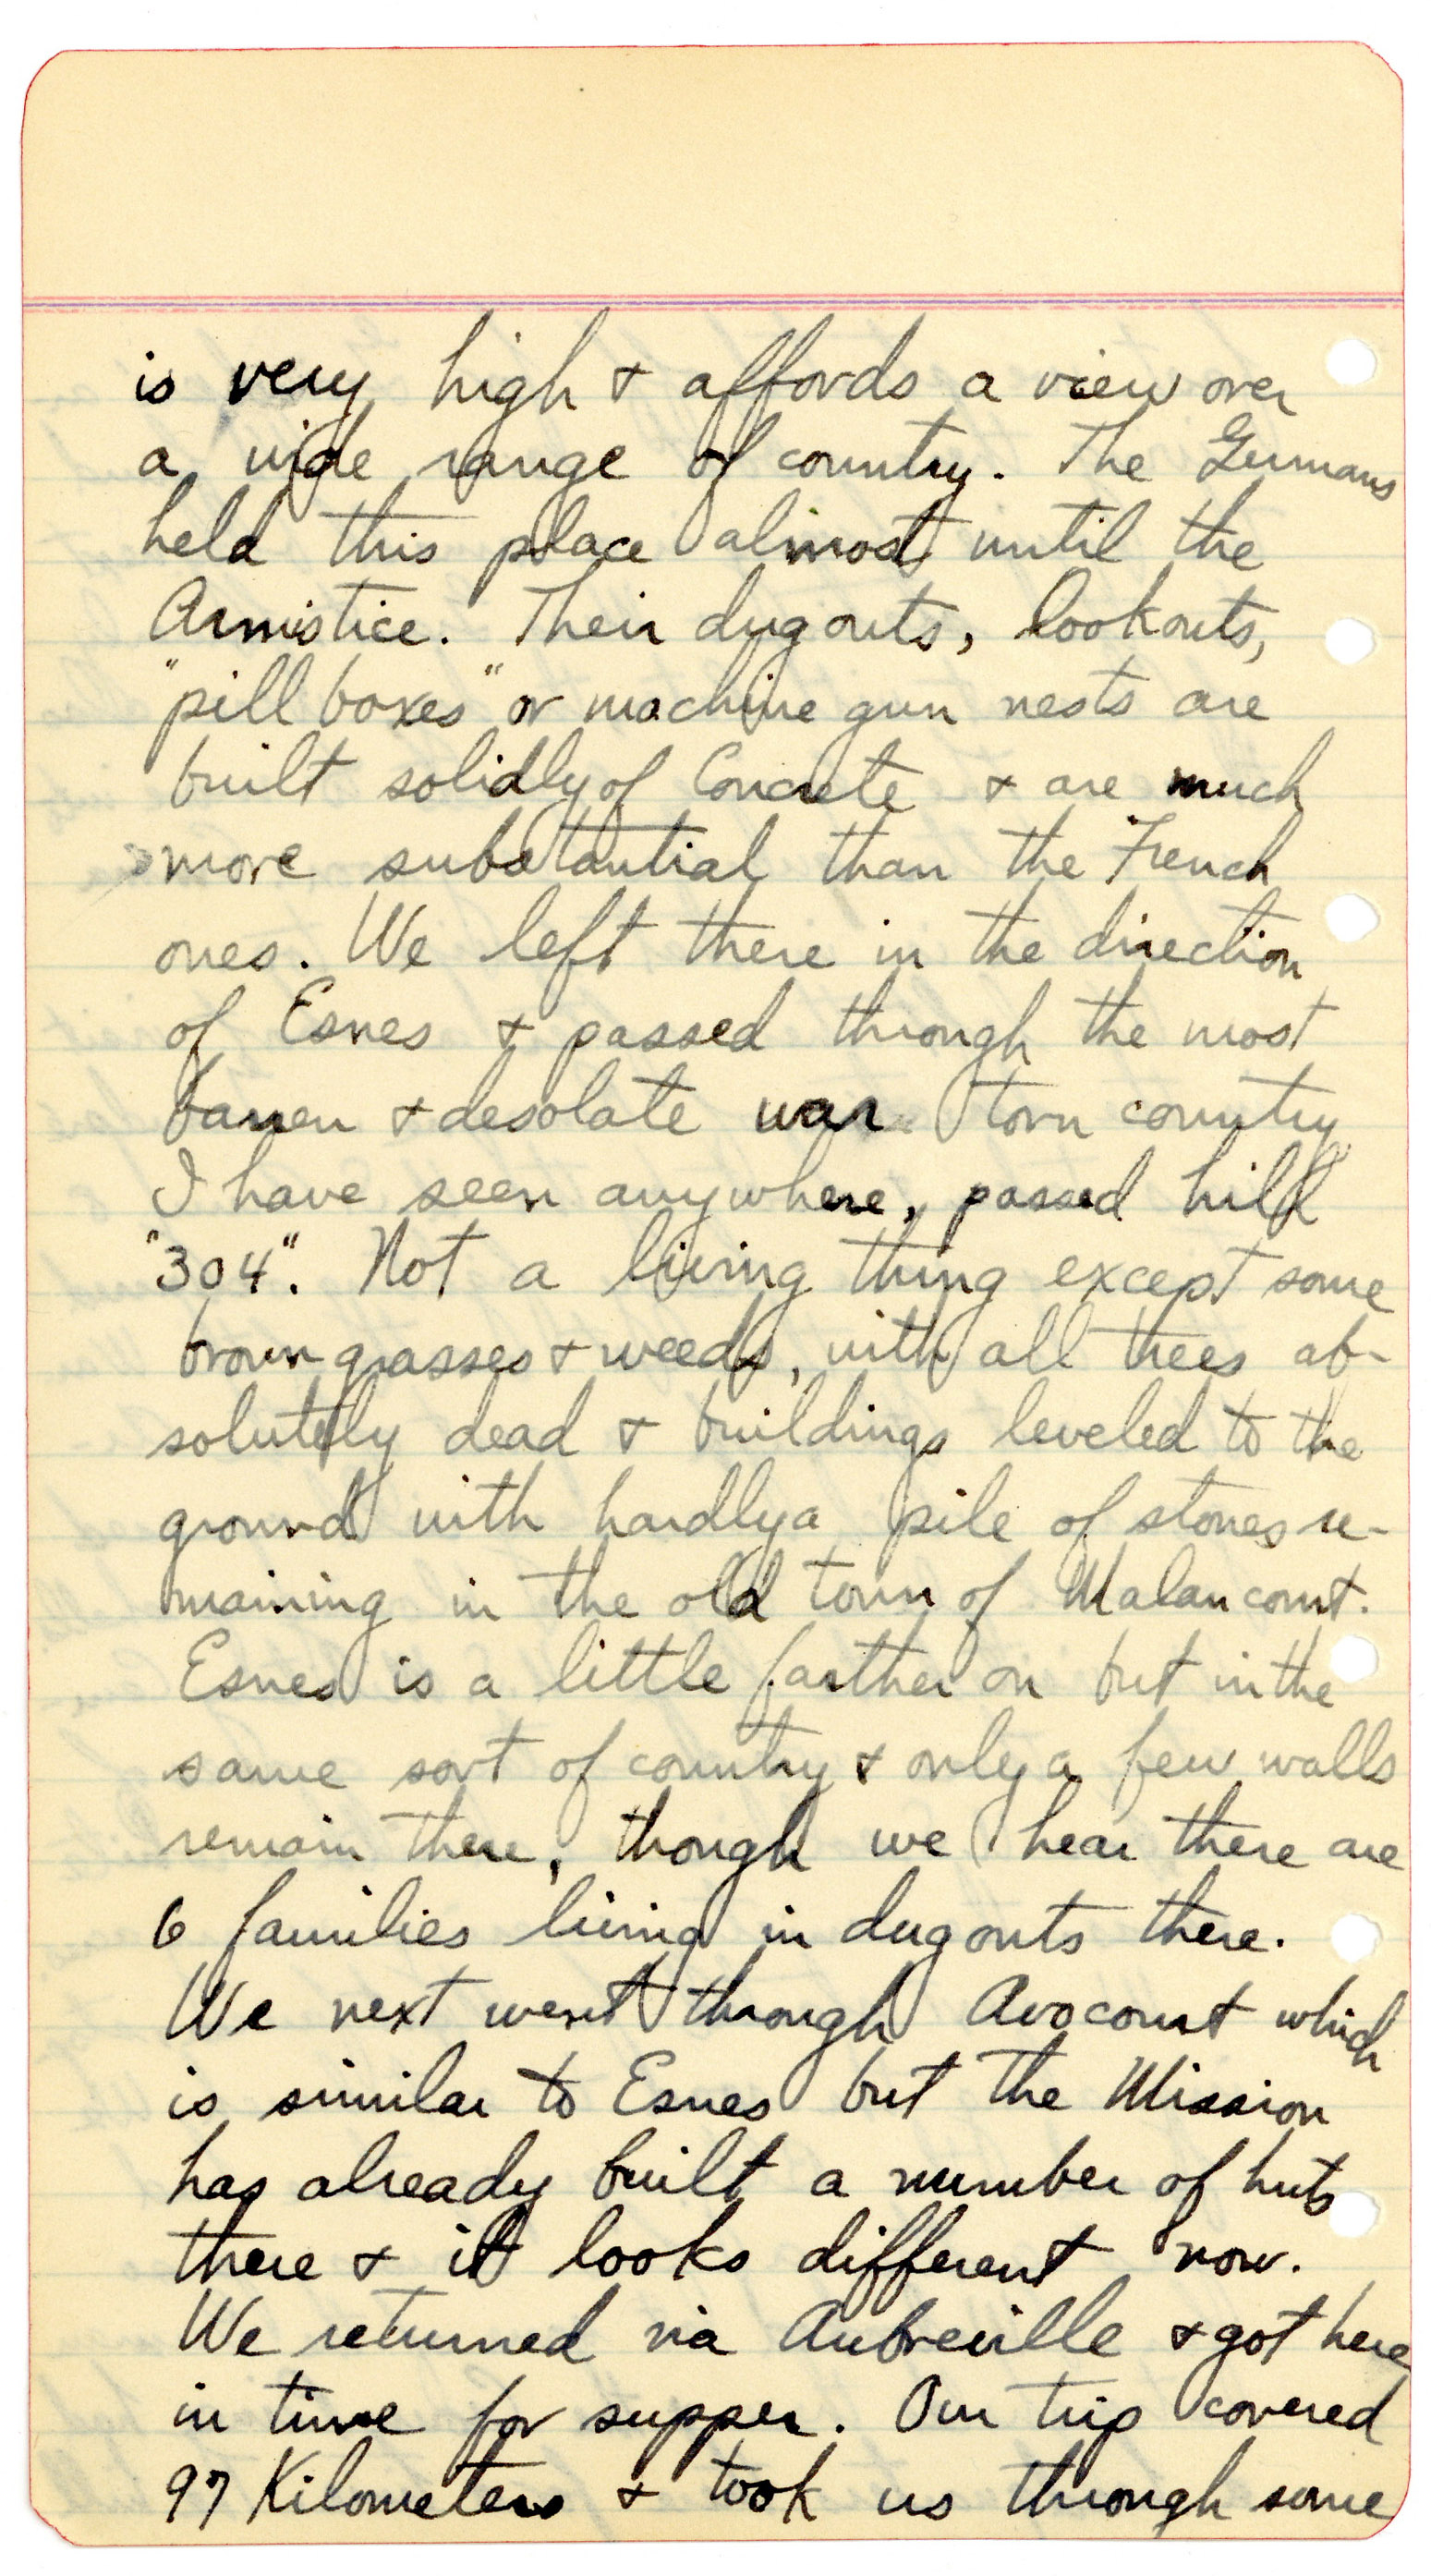 is very high & affords a view over
a wide range of country. The Germans
held this place almost until the
Armistice. Their dugouts, lookouts,
"pill boxes" or machine gun nests are
built solidly of Concrete & are much
more substantial than the French
ones. We left there in the direction
of Esnes & passed through the most
barren & desolate war torn country
I have seen anywhere, passed hill
"304". Not a living thing except some
brown grasses & weeds, with all trees ab-
solutely dead & buildings leveled to the
ground with hardly a pile of stones re-
maining in the old town of Malancourt.
Esnes is a little farther on but in the
same sort of country & only a few walls
remain there, though we hear there are
6 families living in dugouts there.
We next went through Avocourt which
is similar to Esnes but the Mission
has already built a number of huts
there & it looks different now.
We returned via Aubreville & got here
in time for supper. Our trip covered
97 Kilometers & took us through some